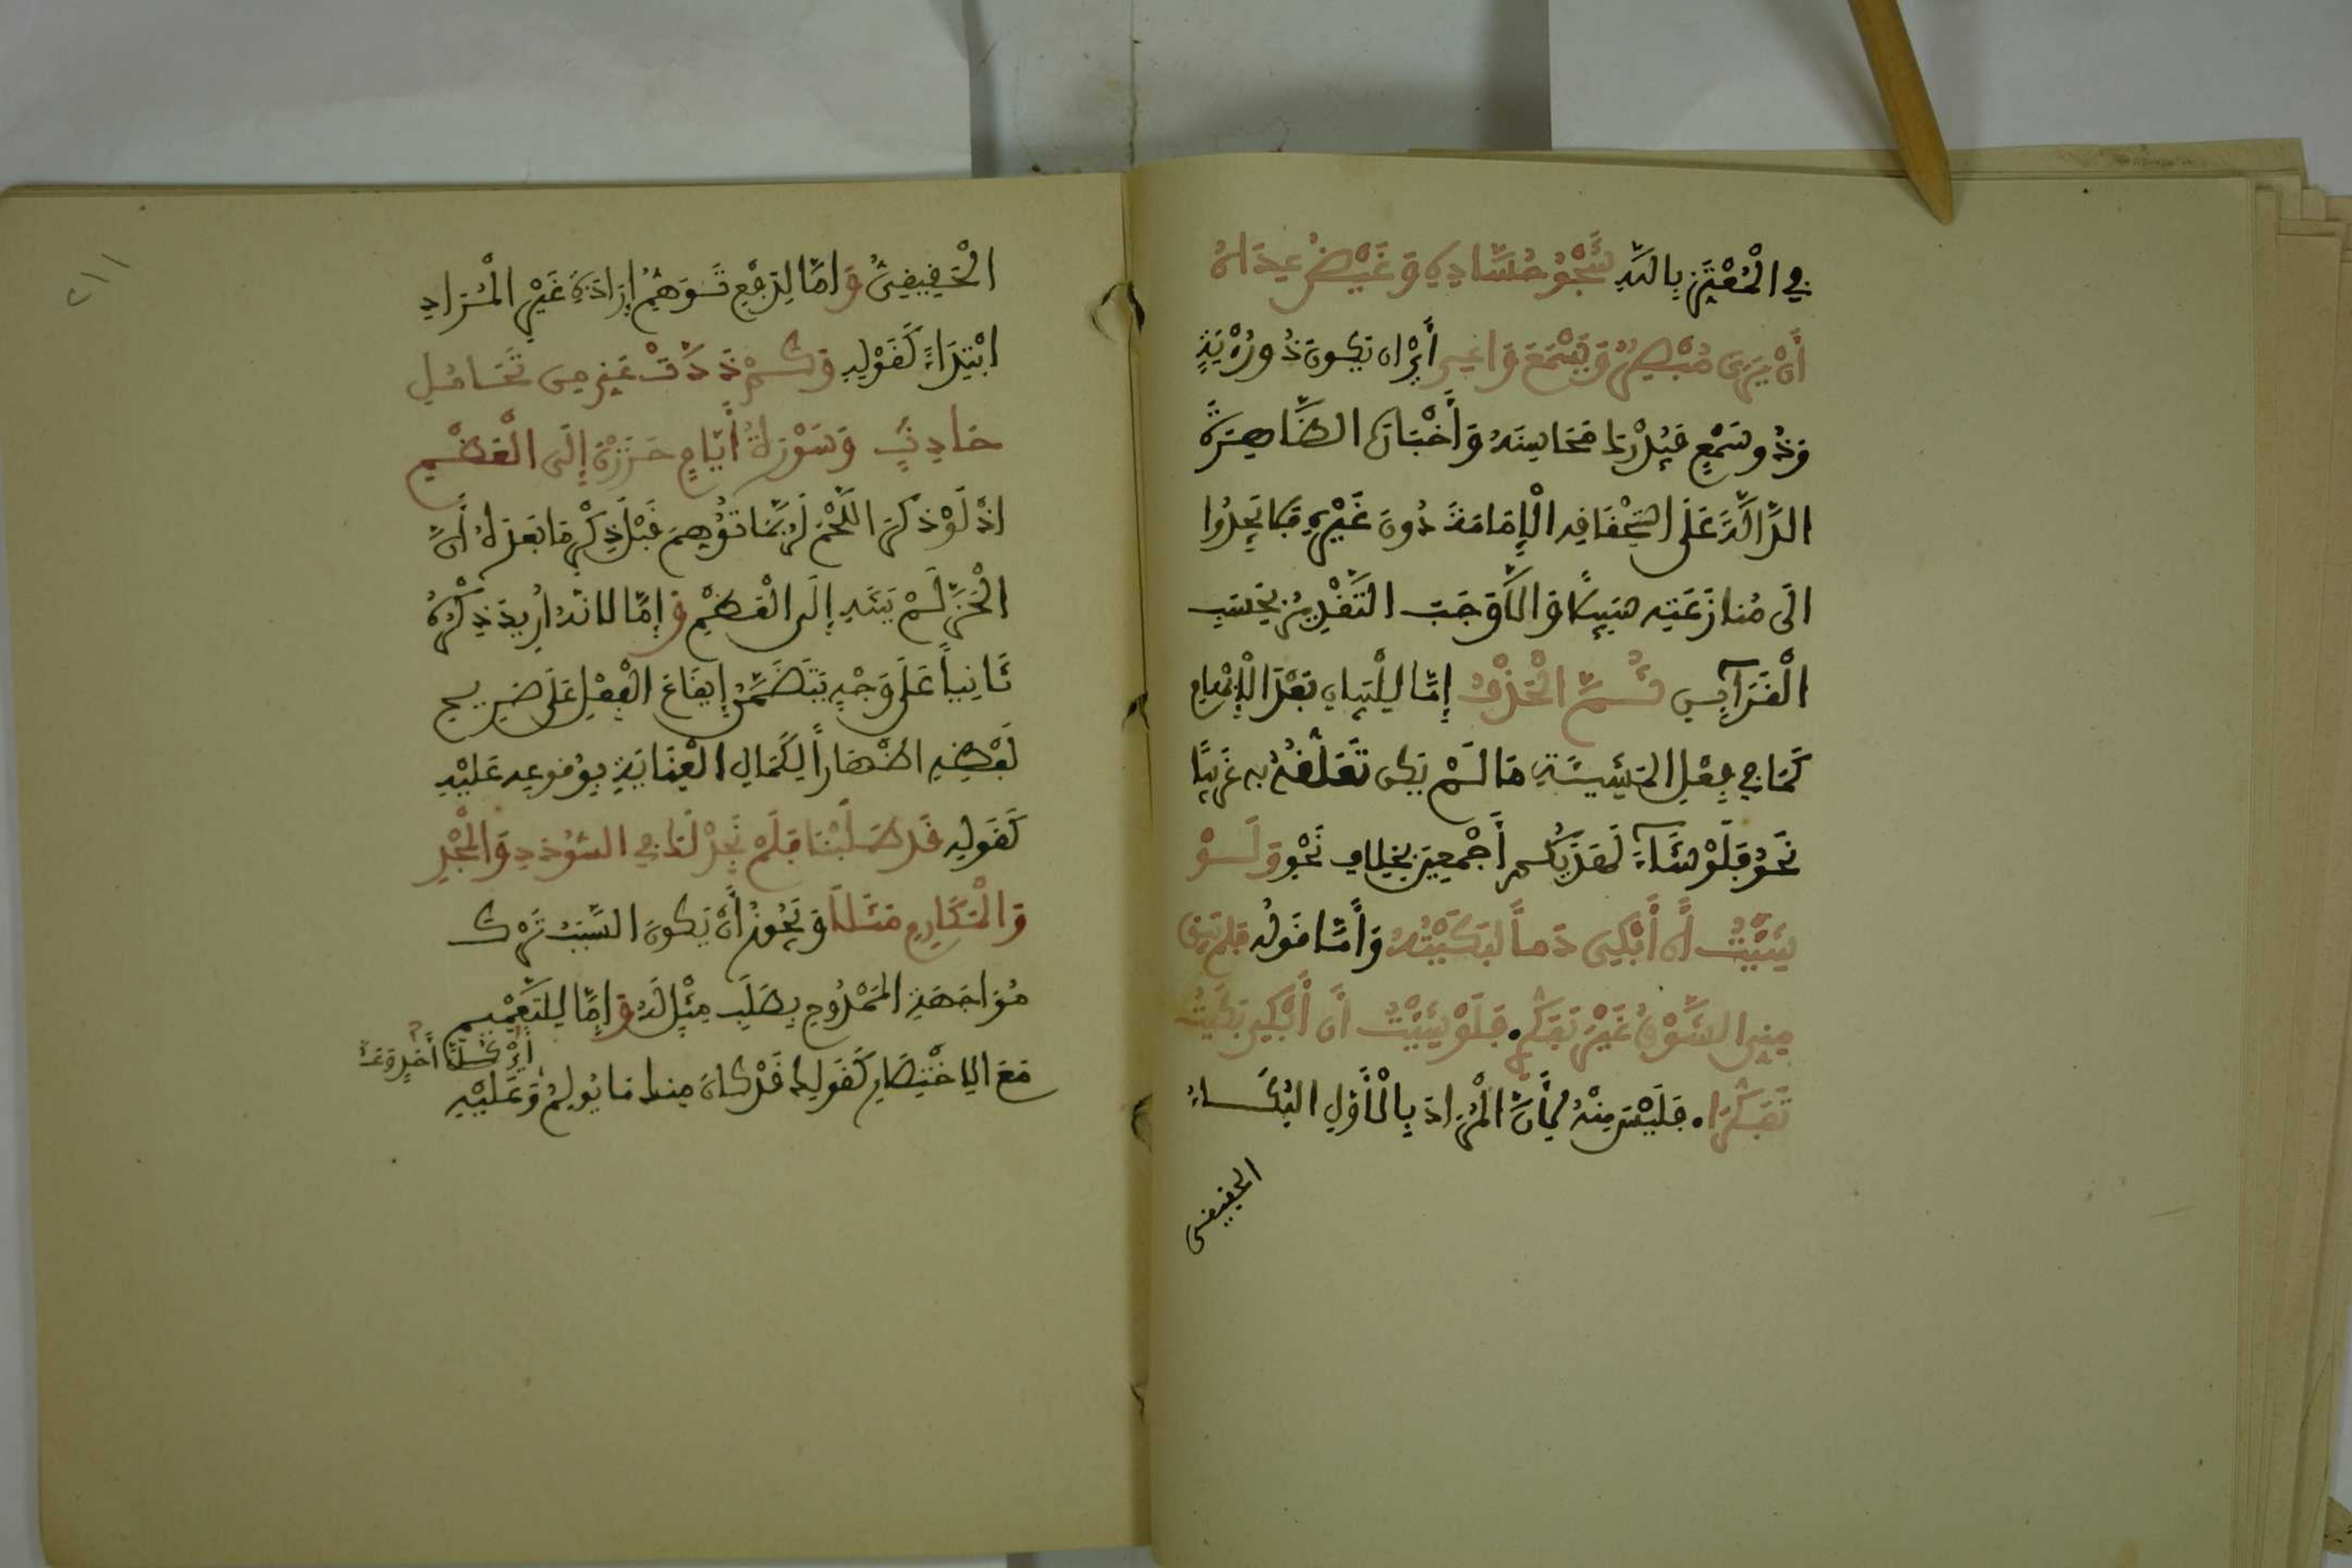 في الْمُعْتَزِّ بِاللَّهِ شَجْوُ حُسَّادِهِ وَغَيْضُ عِدَاهُ
أَنْ يَرَى مُبْصِرٌ وَيَسْمَعَ وَاعِي أَيْ ان يَكونَ ذُو رُؤْيَةٍ
وَذُو سَمْعٍ فَيُدْرِكَ مَحَاسِنَهُ وَأَخْبَارَهُ الظَّاهِرَةَ
الدَّالَّةَ عَلَى اسْتِحْقَاقِهِ الْإِمَامَةَ دُونَ غَيْرِهِ فَلَا يَجِدُوا
الَى مُنَازَعَتِهِ سَبِيلًا وَالاَّ وَجَبَ التَّقْدِيرُ بِحَسَبِ
الْقَرَآيِنِ ثُمَّ الْحَذْفُ إِمَّا لِلْبَيَانِ بَعْدَ الْإِبْهَامِ
كَمَا فِي فِعْلِ الْمَشِيئَةِ مَا لَمْ يَكن تَعَلُّقُهُ بِهِ غَرِيبًا
نَحْوُ فَلَوْ شَآءَ لَهَدَيكُم أَجْمَعِينَ بِخِلَافِ نَحْوِ وَلَوْ
شِئْتُ أَن أَبْكِي دَماً لَبَكَيْتُهُ وَأَمَّا قَولُه فَلَمْ يُبْقِ
مِنِّي الشَّوْقُ غَيْرَ تَفَكُّرِ. فَلَوْ شِئْتُ أَن أَبْكِي بَكَيْتُ
تَفَكُّرَا. فَلَيْسَ مِنْهُ لِأَنَّ الْمُرَادَ بِالْأَوَّلِ الْبُكَاءُ
الحقيقي
الْحَقِيقِيُّ وَامَّا لِدَفْعِ تَوَهُّمِ إِرَادَةِ غَيْرِ الْمُرَادِ
ابْتِدَاءً كَقَوْلِهِ وَكَمْ ذُدتَّ عَنِّي مِن تَحَامُلِ
حَادِثٍ وَسَوْرَةِ أَيَّامٍ حَزَزْنَ إِلَى الْعَظْمِ
اذْ لَوْ ذَكَرَ اللَّحْمَ لَرُبَّمَا تُوُهِّمَ قَبْلَ ذِكْرِ مَا بَعْدَهُ أَنَّ
الْحَزَّ لَمْ يَنْتَهِ إِلَى الْعَظْمِ وَإِمَّا لانَّهُ أُرِيدَ ذِكْرُهُ
ثَانِياً عَلَى وَجْهٍ يَتَضَمَّنُ إِيقَاعَ الْفِعْلِ عَلَى صَرِيحِ
لَفْظِهِ اظْهَاراً لِكَمَالِ الْعِنَايَةِ بِوُقُوعِهِ عَلَيْهِ
كَقَولِهِ قَد طَلَبْنَا فَلَمْ نَجِدْ لَكَ فِي السُّؤْدَدِ وَالْمَجْدِ
وَالْمَكَارِمِ مَثَلَا وَيَجُوزُ أَنْ يَكونَ السَّبَبُ تَرْكَ
مُوَاجَهَةِ الْمَمْدُوحِ بِطَلَبِ مِثْلٍ لَهُ وَإِمَّا لِلتَّعْمِيمِ
مَعَ الاِخْتِصَارِ كَقَولِكَ قَدْ كَانَ مِنكَ مَا يُولِمُ وَعَلَيْهِ
أَيْ كُلَّ أَحَدٍ
٢١١